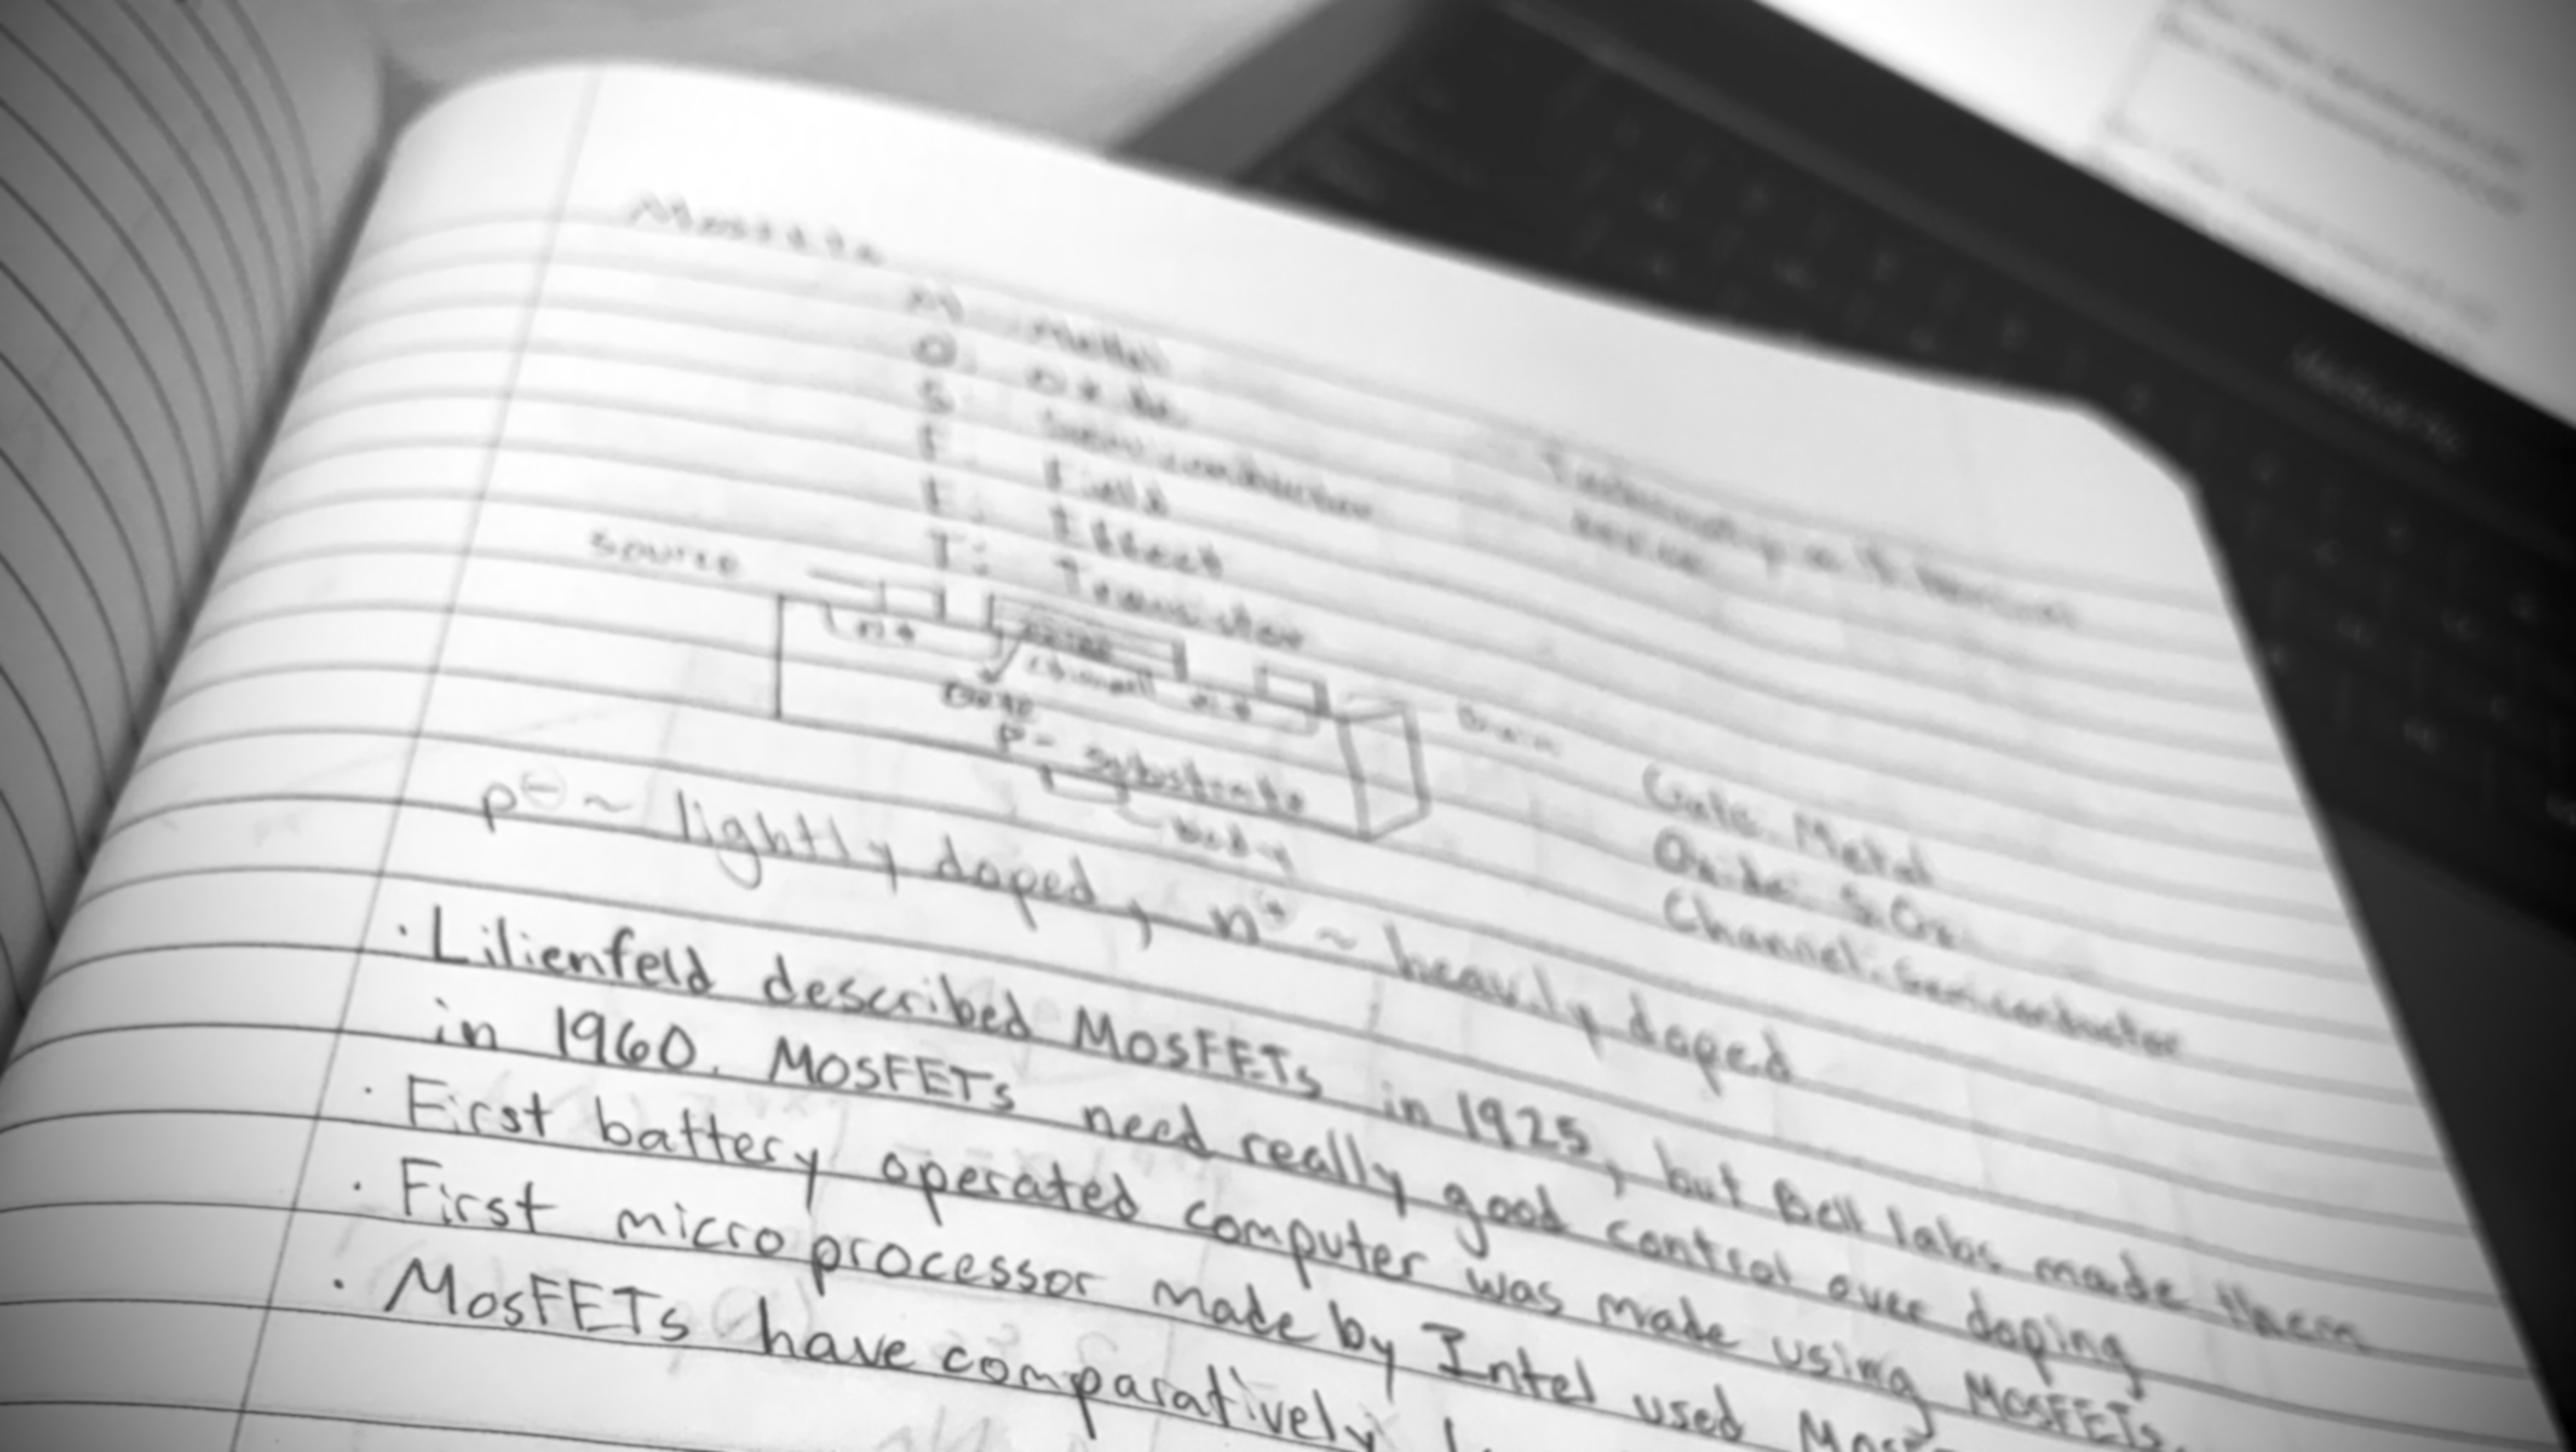 MOSFETs
M: Mettal
O: Oxide
S: Semiconductor
F: Field
E: Effect
T: Transistor
Technically a 4 terminal
device
Source
n+
channel
n+
Drain
P- substrate
Body
Gate: Metal
Oxide: SiO2
Channel: Semiconductor
p⊖ ~ lightly doped, n+ ~ heavily doped
· Lilienfeld described MOSFETs in 1925, but Bell labs made them
in 1960. MOSFETs need really good control over doping
· First battery operated computer was made using MOSFETs.
· First microprocessor made by Intel used
· MOSFETs have comparatively